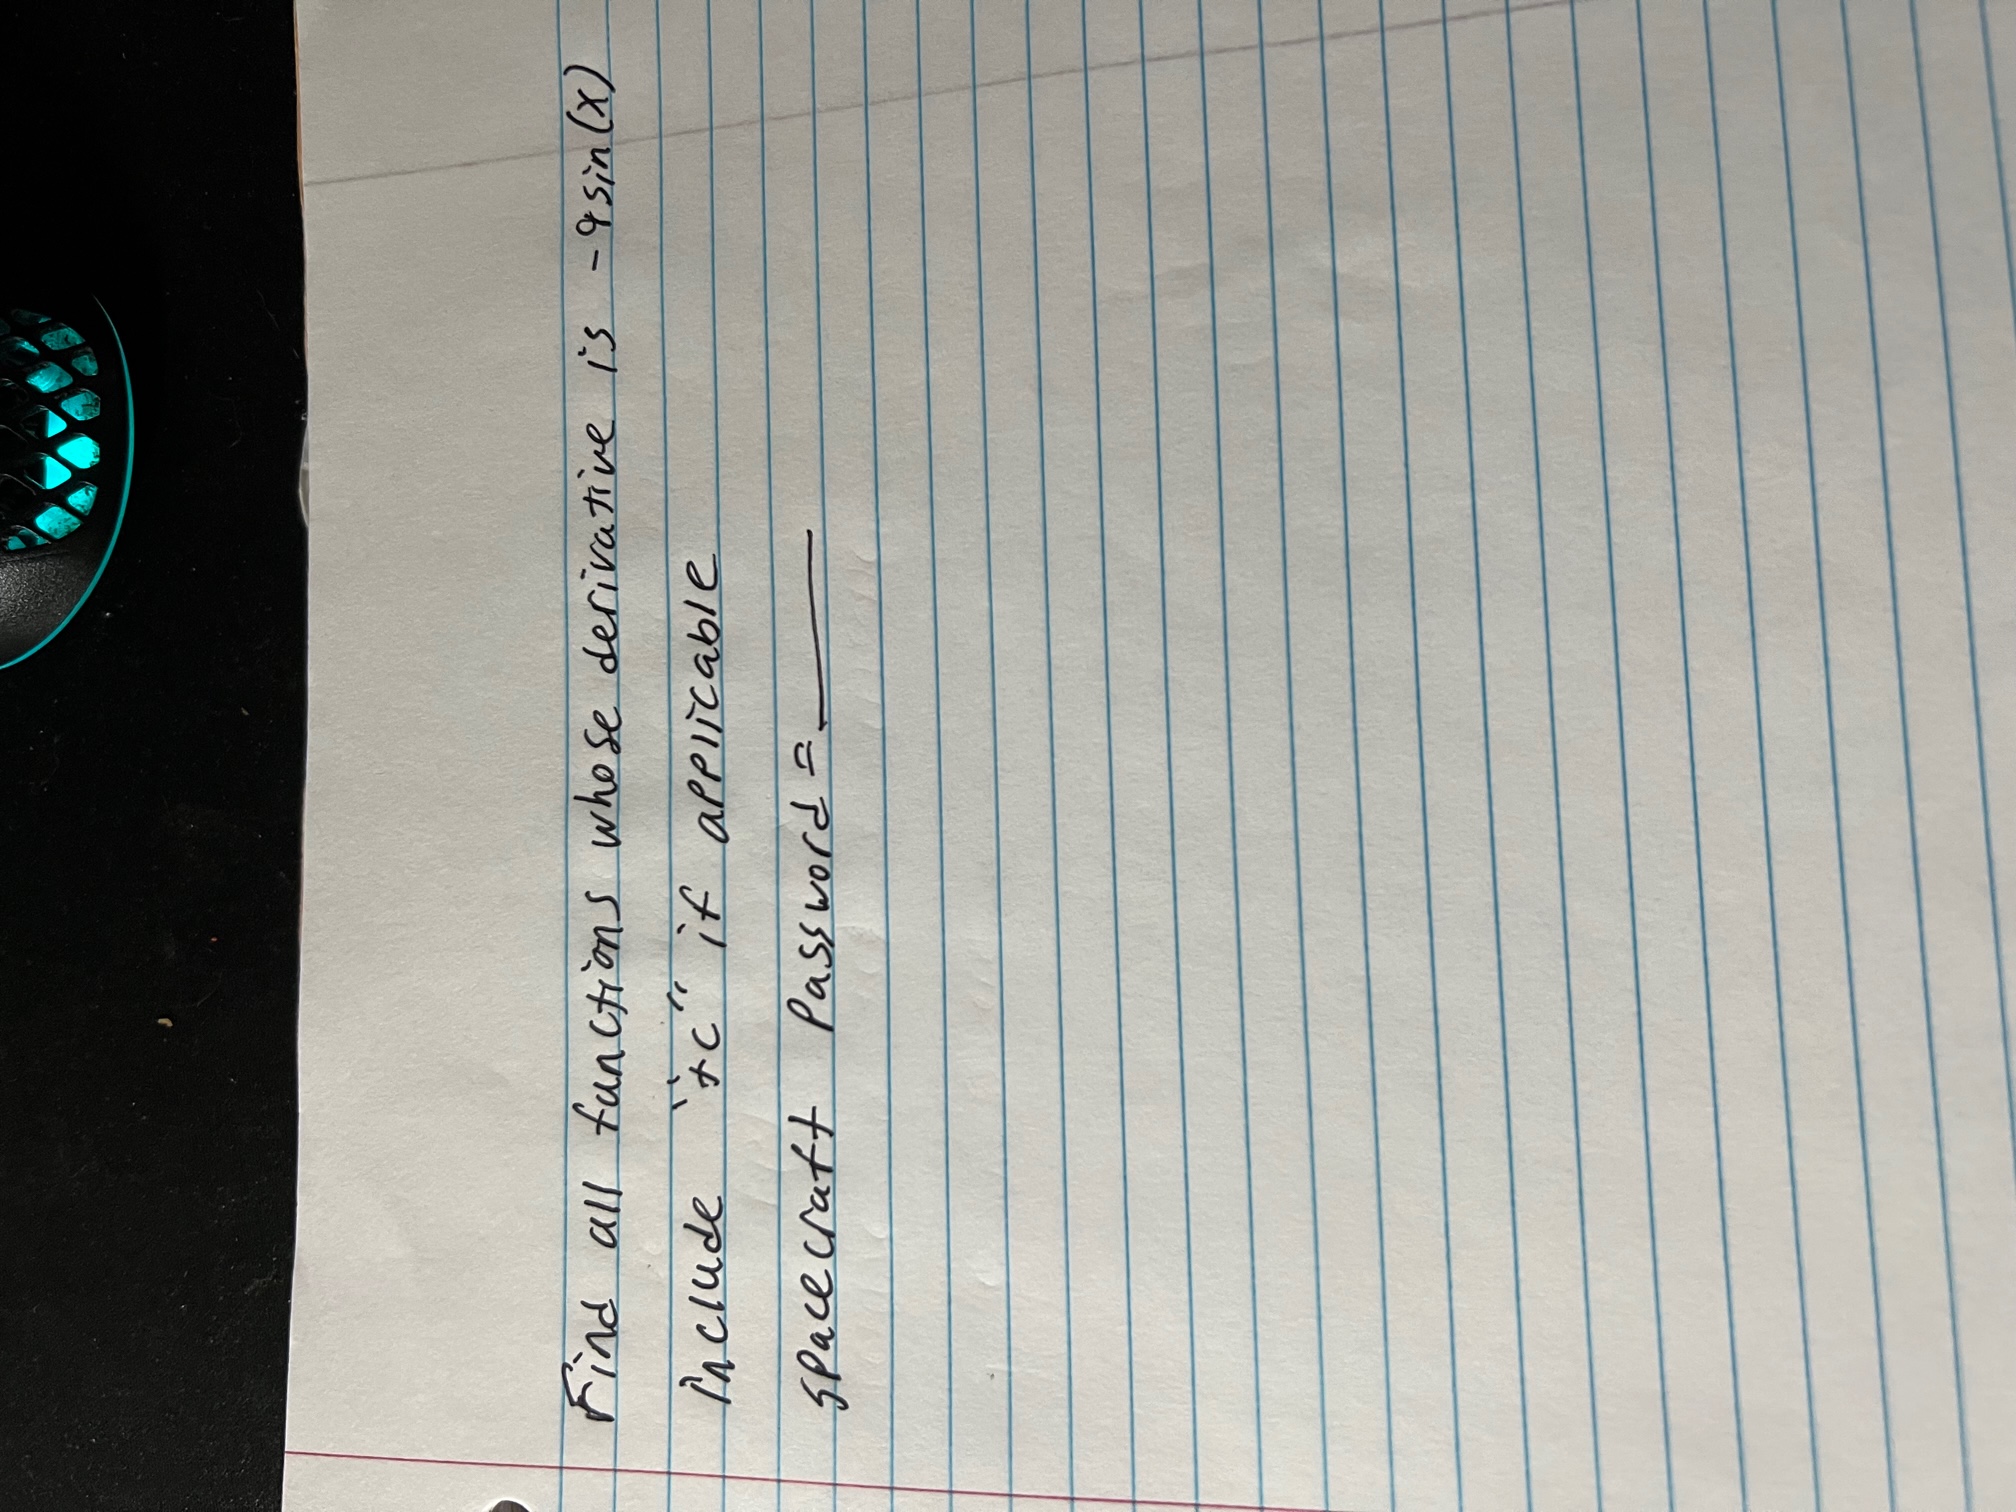 Find all functions whose derivative is -9sin(x)
include "+c" if applicable
spacecraft password = ____